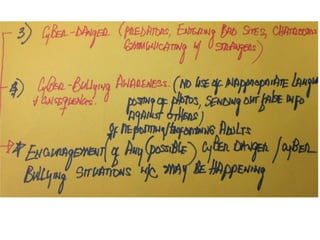 3) CYBER-DANGER (PREDATORS, ENTERING BAD SITES, CHATROOMS
COMMUNICATING W/ STRANGERS)
CYBER-BULLYING AWARENESS. (NO USE OF INAPPROPRIATE LANGUA
+ CONSEQUENCES. POSTING OF PHOTOS, SENDING OUT FAKE INFO
AGAINST OTHERS)
REPORTING/INFORMING ADULTS
* ENCOURAGEMENT OF ANY (POSSIBLE) CYBER DANGER / CYBER
BULLYING SITUATIONS W/C MAY BE HAPPENING